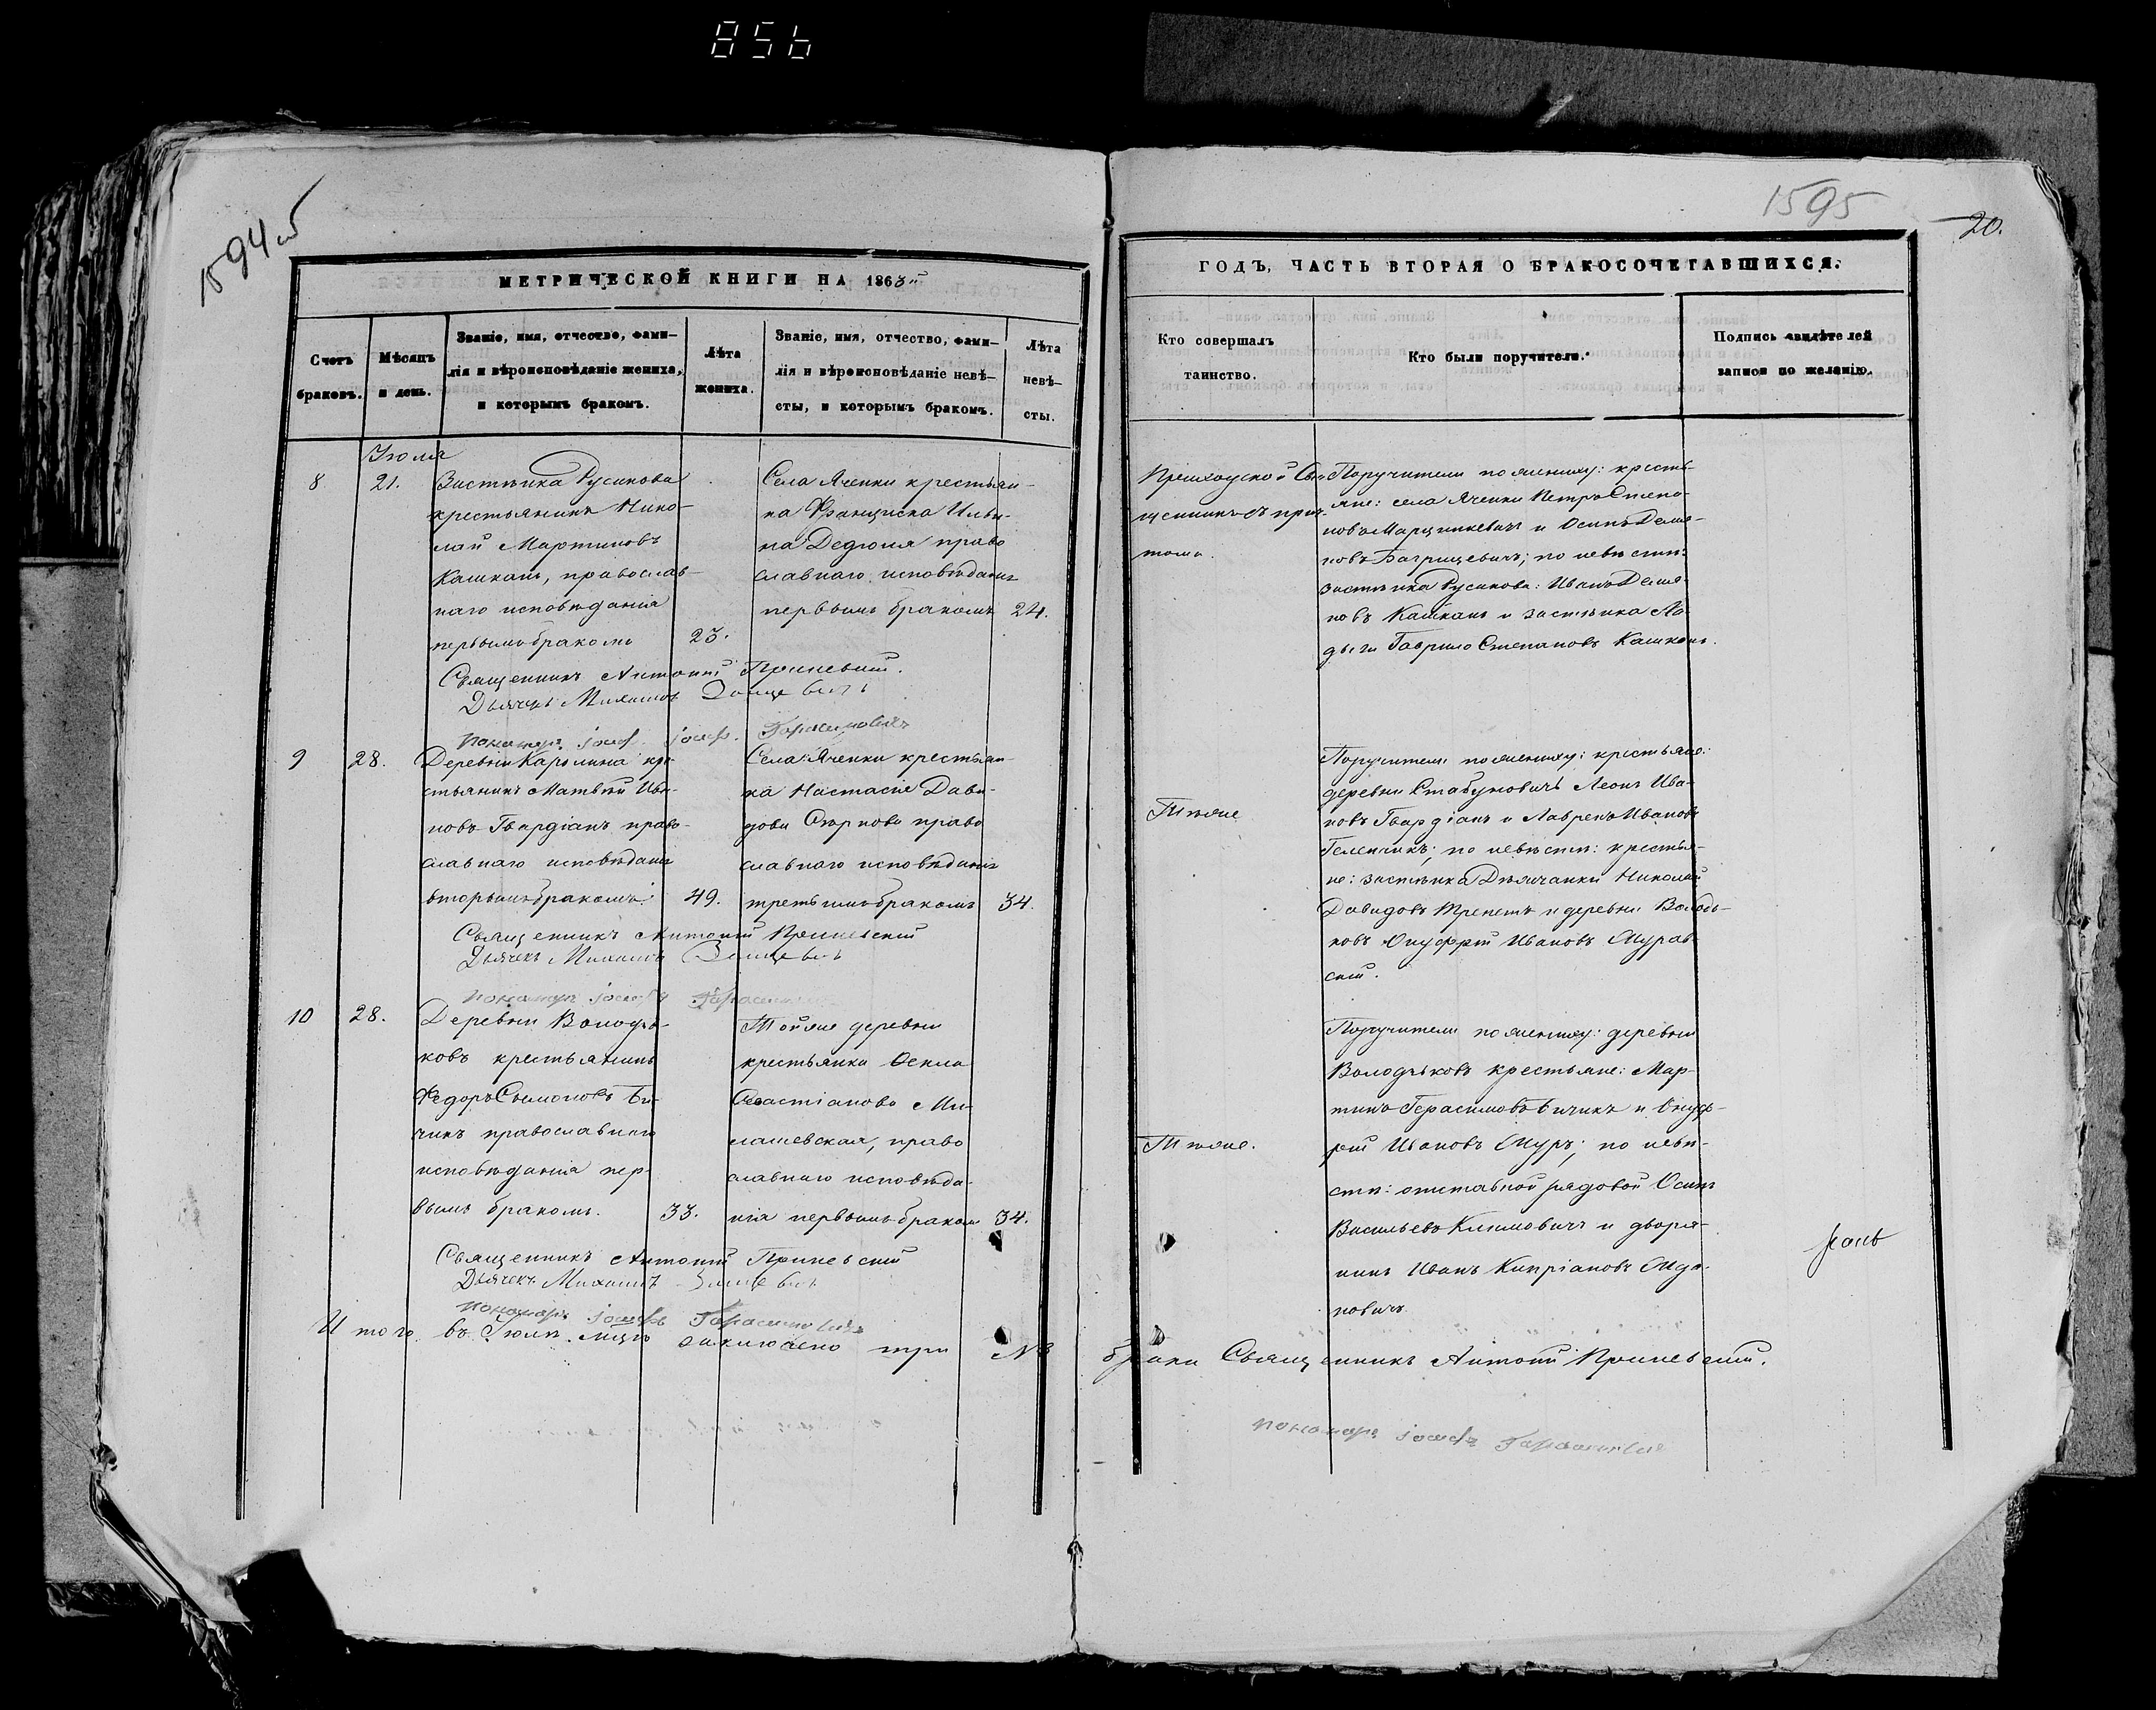 856
1594 об
1595
20.
МЕТРИЧЕСКОЙ КНИГИ НА 1863й
ГОДЪ, ЧАСТЬ ВТОРАЯ О БРАКОСОЧЕТАВШИХСЯ.
Счетъ
браковъ.
Мѣсяцъ
и день.
Званіе, имя, отчество, фами-
лія и вѣроисповѣданіе жениха,
и которымъ бракомъ.
Лѣта
жениха.
Званіе, имя, отчество, фами-
лія и вѣроисповѣданіе невѣ-
сты, и которымъ бракомъ.
Лѣта
невѣ-
сты.
Кто совершалъ
таинство.
Кто были поручители.
Подпись свидѣтелей
записи по желанію.
Іюля
8
21.
Застѣнка Русинова
крестьянинъ Нико-
лай Мартиновъ
Кашканъ, православ-
наго исповѣданія
первымъ бракомъ
23.
Села Яченки крестьян-
ка Францишка Ильи-
на Дедюля право
славнаго исповѣданія
первымъ бракомъ
24.
Приходской Свя
щенникъ съ прич-
томъ.
Поручители по жениху: кресть-
яне: села Яченки Петръ Степа-
новъ Марцинкевичъ и Осипъ Демья-
новъ Багрицевичъ; по невѣстѣ:
застѣнка Русинова: Иванъ Демья-
новъ Кашканъ и застѣнка Ла-
дыги Гаврило Степановъ Кашканъ.
Священникъ Антоній
Дьячекъ Михаилъ
Пономарь Іосифъ Гарасимовичъ
9
28.
Деревни Каролина кре-
стьянинъ Матвѣй Ива-
новъ Гвардіанъ право-
славнаго исповѣданія
вторымъ бракомъ
49.
Села Яченки крестьян-
ка Настасія Дави-
дова право
славнаго исповѣданія
третьимъ бракомъ
34.
Тѣже
Поручители по жениху: крестьяне:
деревни Стабуновичъ Леонъ Ива-
новъ Гвардіанъ и Лавренъ Ивановъ
Геленчикъ; по невѣстѣ: крестья-
не: застѣнка Николай
Давидовъ Трепетъ и деревни Володь-
ковъ Онуфрій Ивановъ
скій.
Священникъ Антоній
Дьячекъ Михаилъ
Пономарь Іосифъ
10
28.
Деревни Володь-
ковъ крестьянинъ
Федоръ Самоновъ Би-
чикъ православнаго
исповѣданія пер-
вымъ бракомъ.
33.
Тойже деревни
крестьянка Фекла
Севастіанова Ми-
лашевская, право
славнаго исповѣда-
нія первымъ бракомъ
34.
Тѣже.
Поручители по жениху: деревни
Володьковъ крестьяне: Мар-
тинъ Герасимовъ Бичикъ и Онуф-
рій Ивановъ Журъ; по невѣ-
стѣ: отставной рядовой Осипъ
Васильевъ Климовичъ и дворя-
нинъ Иванъ Кипріановъ
новичъ.
Священникъ Антоній
Дьячекъ Михаилъ
Пономарь Іосифъ Гарасимовичъ
Итого въ Іюлѣ мцѣ заключено три №3 брака Священникъ Антоній
Пономарь Іосифъ Гарасимовичъ